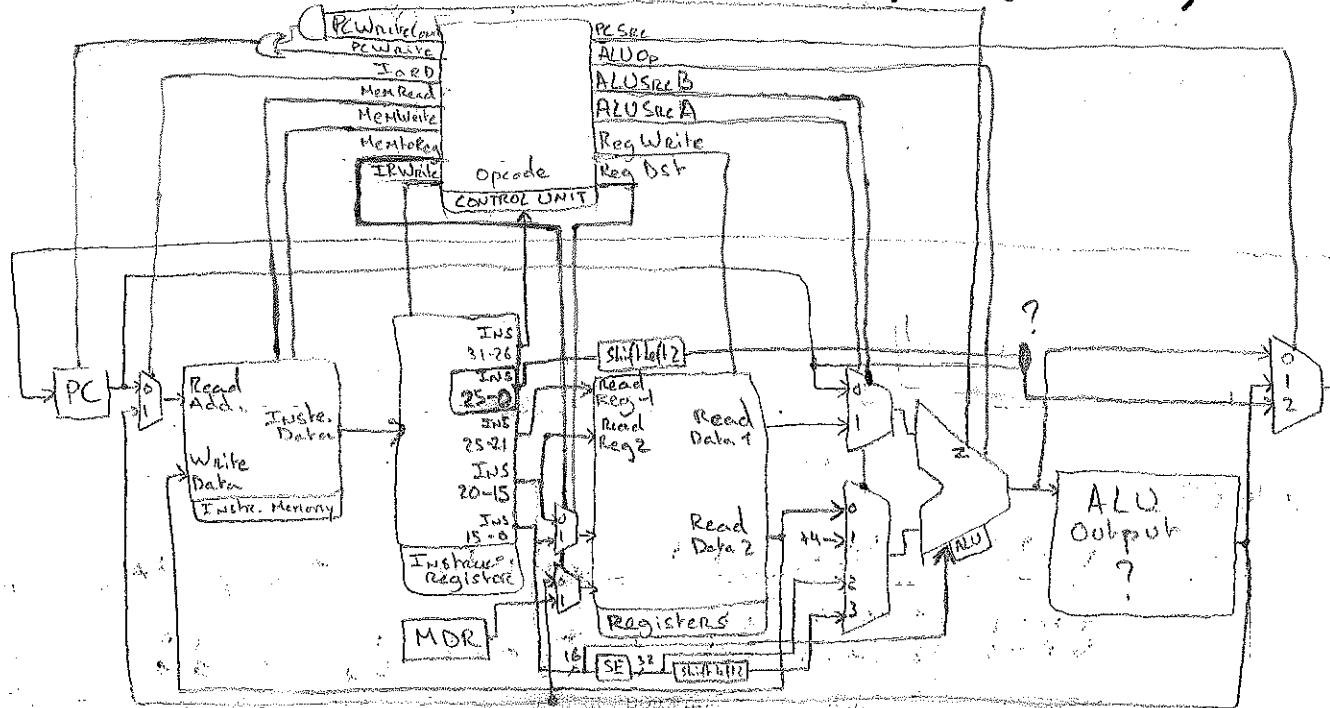 PCWriteCont
PCWrite
IorD
MemRead
MemWrite
MemtoReg
IRWrite
Opcode
CONTROL UNIT
PCSrc
ALUOp
ALUSrcB
ALUSrcA
RegWrite
Reg Dst
PC
0
1
Read
Add.
Instr.
Data
Write
Data
Instr. Memory
INS
31-26
INS
25-0
INS
25-21
INS
20-15
INS
15-0
Register
MDR
Shift left 2
Read
Reg-1
Read
Reg2
Read
Data 1
Read
Data 2
Registers
0
1
0
1
16
SE
32
Shift left 2
0
1
0
+4
1
2
3
Z
ALU
?
ALU
Output
?
0
1
2